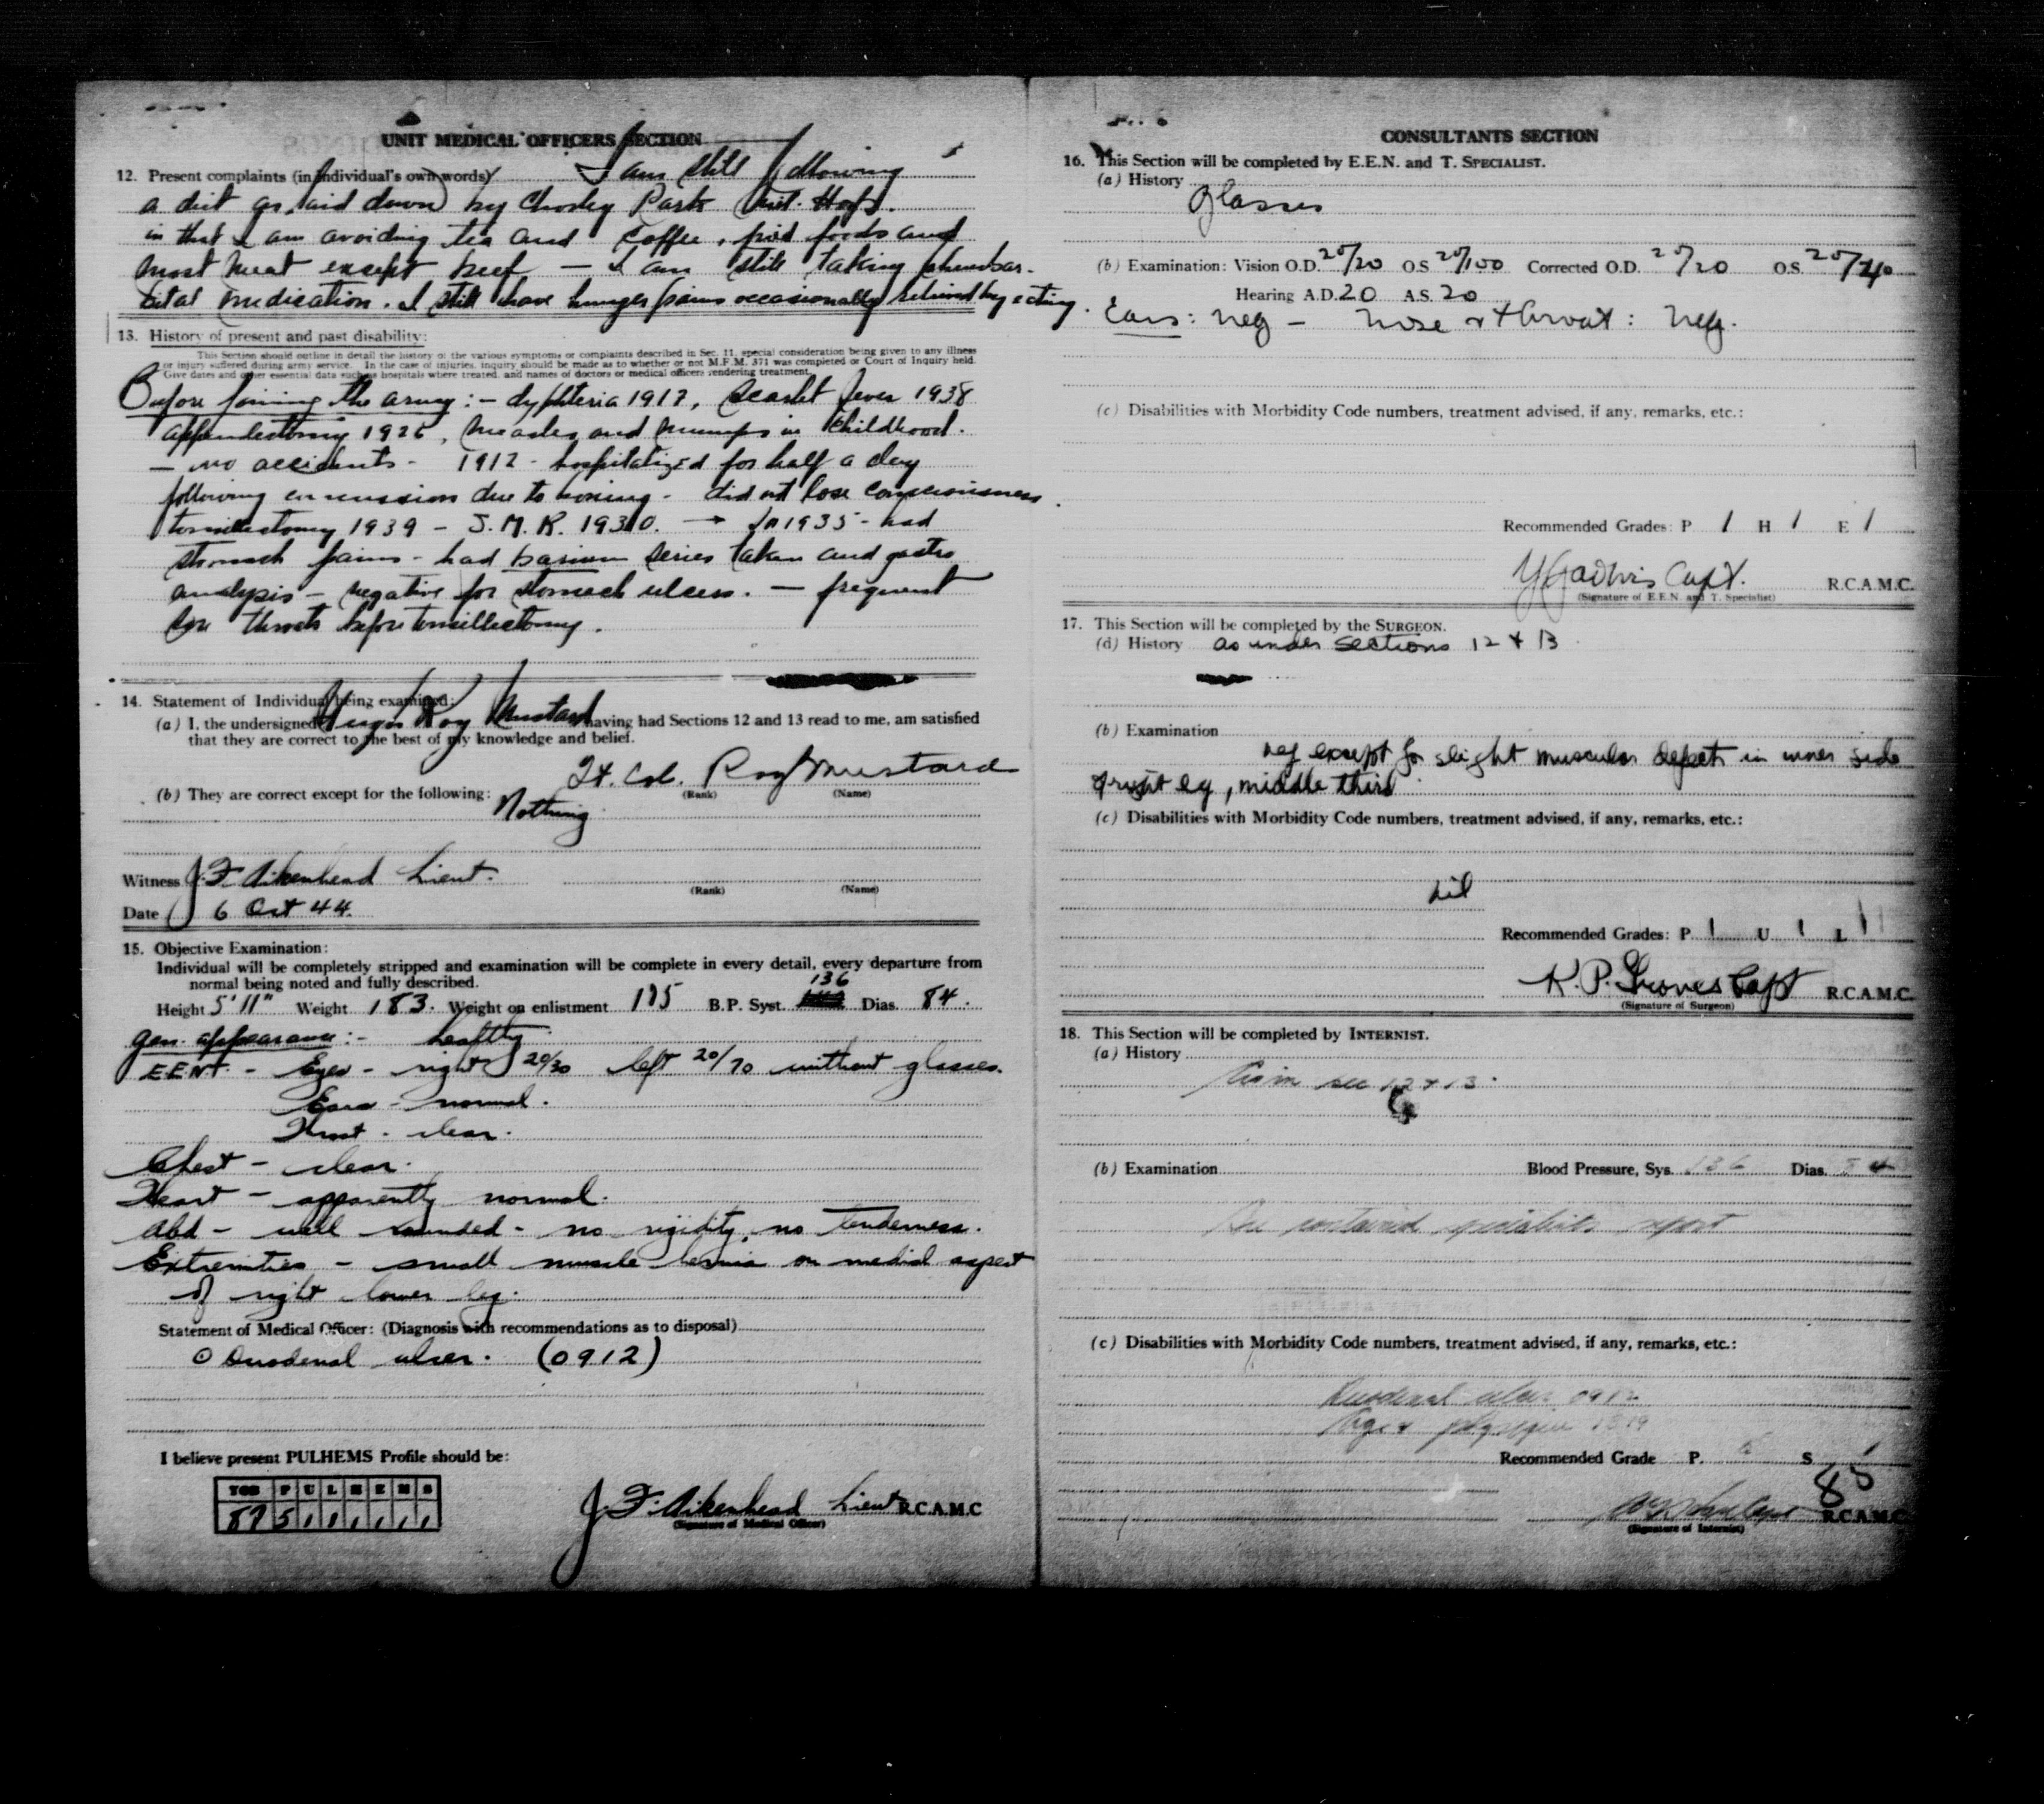 UNIT MEDICAL OFFICERS SECTION
12. Present complaints (in individual's own words) I am still following
a diet as laid down by Chorley Park Mil. Hosp.
in that I am avoiding tea and coffee, fried foods and
most meat except beef — I am still taking phenobar-
bital medication. I still have hunger pains occasionally relieved by eating.
13. History of present and past disability:
This Section should outline in detail the history of the various symptoms or complaints described in Sec. 11, special consideration being given to any illness
or injury suffered during army service. In the case of injuries, inquiry should be made as to whether or not M.F.M. 371 was completed or Court of Inquiry held.
Give dates and other essential data such as hospitals where treated, and names of doctors or medical officers rendering treatment.
Before joining the army:- dyphteria 1917, Scarlet fever 1938
appendectomy 1926, measles and mumps in childhood.
— no accidents - 1912 - hospitalized for half a day
following concussion due to boxing - did not lose consciousness.
tonsillectomy 1939 - S.M.R. 1930. → In 1935 - had
stomach pains - had barium series taken and gastro
analysis - negative for stomach ulcers. — frequent
sore throats before tonsillectomy.
14. Statement of Individual being examined:
(a) I, the undersigned Roy Mustard having had Sections 12 and 13 read to me, am satisfied
that they are correct to the best of my knowledge and belief.
Lt. Col. Roy Mustard
(b) They are correct except for the following: (Rank) (Name)
Nothing
Witness J. F. Aikenhead Lieut.
(Rank) (Name)
Date 6 Oct 44.
15. Objective Examination:
Individual will be completely stripped and examination will be complete in every detail, every departure from
normal being noted and fully described.
136
Height 5'11" Weight 183. Weight on enlistment 185 B.P. Syst. Dias. 84.
Gen. appearance:- healthy
E.E.N.T. - Eyes - right 20/30 left 20/70 without glasses.
Ears - normal.
Throat - clear.
Chest - clear.
Heart - apparently normal.
Abd - well rounded - no rigidity, no tenderness.
Extremities - small muscle hernia on medial aspect
of right lower leg.
Statement of Medical Officer: (Diagnosis with recommendations as to disposal)
Duodenal ulcer. (0912)
I believe present PULHEMS Profile should be:
YOB P U L H E M S
87 5 1 1 1 1 1 1
J. F. Aikenhead Lieut R.C.A.M.C
(Signature of Medical Officer)
CONSULTANTS SECTION
16. This Section will be completed by E.E.N. and T. SPECIALIST.
(a) History
Glasses
(b) Examination: Vision O.D. 20/20 O.S 20/100 Corrected O.D. 20/20 O.S. 20/40
Hearing A.D. 20 A.S. 20
Ears: neg - nose & throat: neg.
(c) Disabilities with Morbidity Code numbers, treatment advised, if any, remarks, etc.:
Recommended Grades: P 1 H 1 E 1
Capt. R.C.A.M.C.
(Signature of E.E.N. and T. Specialist)
17. This Section will be completed by the SURGEON.
(d) History as under sections 12 & 13
(b) Examination
neg except for slight muscular defect in inner side
of right leg, middle third
(c) Disabilities with Morbidity Code numbers, treatment advised, if any, remarks, etc.:
nil
Recommended Grades: P 1 U 1 L 1
K. P. Groves Capt R.C.A.M.C.
(Signature of Surgeon)
18. This Section will be completed by INTERNIST.
(a) History
As in sec 12 & 13.
(b) Examination Blood Pressure, Sys. 136 Dias. 84
See contained specialists report
(c) Disabilities with Morbidity Code numbers, treatment advised, if any, remarks, etc.:
Duodenal ulcer 0912
Age & physique 1319
Recommended Grade P. S 1
88
Capt R.C.A.M.C.
(Signature of Internist)